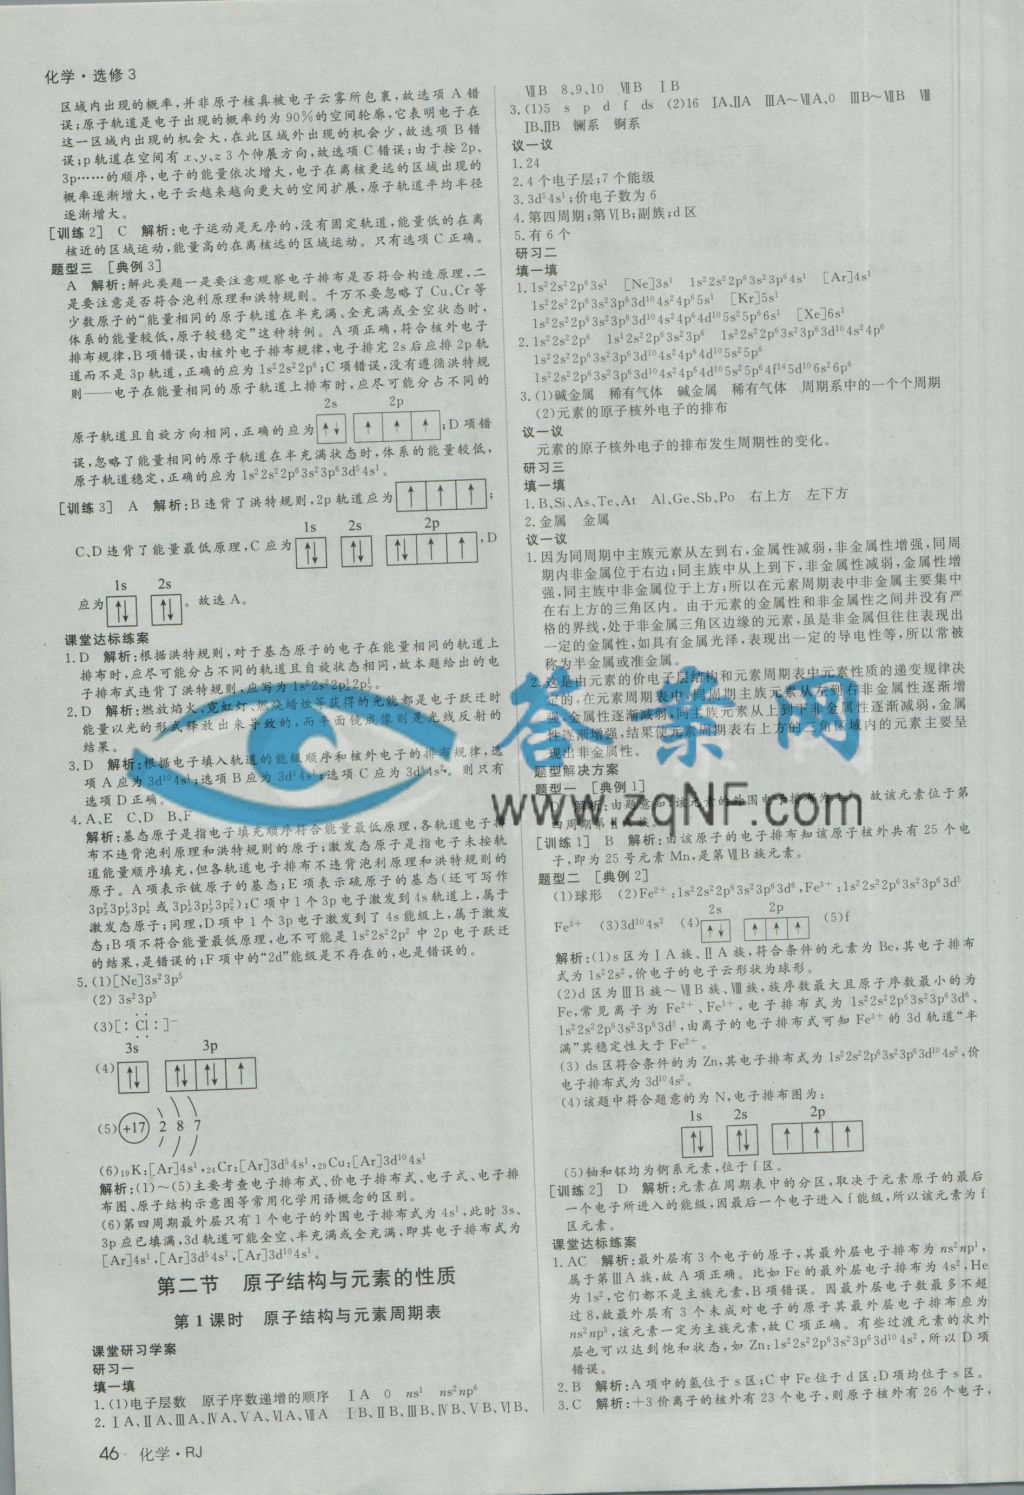 化学·选修3
区域内出现的概率,并非原子核真被电子云雾所包裹,故选项A错
误;原子轨道是电子出现的概率约为90%的空间轮廓,它表明电子在
这一区域内出现的机会大,在此区域外出现的机会少,故选项B错
误;p轨道在空间有x、y、z 3个伸展方向,故选项C错误;由于按2p、
3p……的顺序,电子的能量依次增大,电子在离核更远的区域出现的
概率逐渐增大,电子云越来越向更大的空间扩展,原子轨道平均半径
逐渐增大。
[训练2] C 解析:电子运动是无序的,没有固定轨道,能量低的在离
核近的区域运动,能量高的在离核远的区域运动。只有选项C正确。
题型三 [典例3]
A 解析:解此类题一是要注意观察电子排布是否符合构造原理,二
是要注意是否符合泡利原理和洪特规则。千万不要忽略了Cu、Cr等
少数原子的“能量相同的原子轨道在半充满、全充满或全空状态时,
体系的能量较低,原子较稳定”这种特例。A项正确,符合核外电子
排布规律,B项错误,由核外电子排布规律,电子排完2s后应排2p轨
道而不是3p轨道,正确的应为1s²2s²2p⁶;C项错误,没有遵循洪特规
则——电子在能量相同的原子轨道上排布时,应尽可能分占不同的
2s 2p
原子轨道且自旋方向相同,正确的应为 ↑↓ ↑ ↑ ;D项错
误,忽略了能量相同的原子轨道在半充满状态时,体系的能量较低,
原子轨道稳定,正确的应为1s²2s²2p⁶3s²3p⁶3d⁵4s¹。
[训练3] A 解析:B违背了洪特规则,2p轨道应为 ↑ ↑ ↑ ;
1s 2s 2p
C、D违背了能量最低原理,C应为 ↑↓ ↑↓ ↑↓ ↑ ↑ ,D
1s 2s
应为 ↑↓ ↑↓ 。故选A。
课堂达标练案
1. D 解析:根据洪特规则,对于基态原子的电子在能量相同的轨道上
排布时,应尽可能分占不同的轨道且自旋状态相同,故本题给出的电
子排布式违背了洪特规则,应写为
2. D 解析:燃放焰火、霓虹灯、燃烧蜡烛等获得的光能都是电子跃迁时
能量以光的形式释放出来导致的,而平面镜成像则是光线反射的
结果。
3. D 解析:根据电子填入轨道的能级顺序和核外电子的排布规律,选
项A应为3d¹⁰4s¹;选项B应为 ;选项C应为 。则只有
选项D正确。
4. A、E C、D B、F
解析:基态原子是指电子填充顺序符合能量最低原理,各轨道电子排
布不违背泡利原理和洪特规则的原子;激发态原子是指电子未按轨
道能量顺序填充,但各轨道电子排布不违背泡利原理和洪特规则的
原子。A项表示铍原子的基态;E项表示硫原子的基态(还可写作
);C项中1个3p电子激发到4s轨道上,属于
激发态原子;同理,D项中1个3p电子激发到了4s能级上,属于激发
态;B项不符合能量最低原理,也不可能是1s²2s²2p²中2p电子跃迁
的结果,是错误的;F项中的“2d”能级是不存在的,也是错误的。
5. (1)[Ne]3s²3p⁵
(2) 3s²3p⁵
(3)[:Cl:]⁻
3s 3p
(4) ↑↓ ↑↓ ↑↓ ↑
(5) +17 2 8 7
(6)₁₉K:[Ar]4s¹,₂₄Cr:[Ar]3d⁵4s¹,₂₉Cu:[Ar]3d¹⁰4s¹
解析:(1)~(5)主要考查电子排布式、价电子排布式、电子式、电子排
布图、原子结构示意图等常用化学用语概念的区别。
(6)第四周期最外层只有1个电子的外围电子排布式为4s¹,此时3s、
3p应已填满,3d轨道可能全空、半充满或全充满,即其电子排布式为
[Ar]4s¹、[Ar]3d⁵4s¹、[Ar]3d¹⁰4s¹。
第二节 原子结构与元素的性质
第1课时 原子结构与元素周期表
课堂研习学案
研习一
填一填
1. (1)电子层数 原子序数递增的顺序 ⅠA 0 ns¹ ns²np⁶
2. ⅠA、ⅡA、ⅢA、ⅣA、ⅤA、ⅥA、ⅦA ⅠB、ⅡB、ⅢB、ⅣB、ⅤB、ⅥB、
ⅦB 8、9、10 ⅧB ⅠB
3. (1)5 s p d f ds (2)16 ⅠA、ⅡA ⅢA~ⅦA、0 ⅢB~ⅦB Ⅷ
ⅠB、ⅡB 镧系 锕系
议一议
1. 24
2. 4个电子层;7个能级
3. 3d⁵4s¹;价电子数为6
4. 第四周期;第ⅥB;副族;d区
5. 有6个
研习二
填一填
1. 1s²2s²2p⁶3s¹ [Ne]3s¹ 1s²2s²2p⁶3s²3p⁶4s¹ [Ar]4s¹
1s²2s²2p⁶3s²3p⁶3d¹⁰4s²4p⁶5s¹ [Kr]5s¹
1s²2s²2p⁶3s²3p⁶3d¹⁰4s²4p⁶4d¹⁰5s²5p⁶6s¹ [Xe]6s¹
2. 1s²2s²2p⁶ 1s²2s²2p⁶3s²3p⁶ 1s²2s²2p⁶3s²3p⁶3d¹⁰4s²4p⁶
1s²2s²2p⁶3s²3p⁶3d¹⁰4s²4p⁶4d¹⁰5s²5p⁶
1s²2s²2p⁶3s²3p⁶3d¹⁰4s²4p⁶4d¹⁰5s²5p⁶4f¹⁴5d¹⁰6s²6p⁶
3. (1)碱金属 稀有气体 碱金属 稀有气体 周期系中的一个个周期
(2)元素的原子核外电子的排布
议一议
元素的原子核外电子的排布发生周期性的变化。
研习三
填一填
1. B、Si、As、Te、At Al、Ge、Sb、Po 右上方 左下方
2. 金属 金属
议一议
1. 因为同周期中主族元素从左到右,金属性减弱,非金属性增强,同周
期内非金属位于右边;同主族中从上到下,非金属性减弱,金属性增
强,同主族中非金属位于上方;所以在元素周期表中非金属主要集中
在右上方的三角区内。由于元素的金属性和非金属性之间并没有严
格的界线,处于非金属三角区边缘的元素,虽是非金属但往往表现出
一定的金属性,如具有金属光泽,表现出一定的导电性等,所以常被
称为半金属或准金属。
2. 这是由元素的价电子层结构和元素周期表中元素性质的递变规律决
定的,在元素周期表中,同周期主族元素从左到右非金属性逐渐增
强,金属性逐渐减弱,同主族元素从上到下非金属性逐渐减弱,金属
性逐渐增强,结果使元素周期表右上方的三角区域内的元素主要呈
现出非金属性。
题型解决方案
题型一 [典例1]
D 解析:由题意知该元素的外围电子排布为 ,故该元素位于第
四周期第ⅡA族。
[训练1] B 解析:由该原子的电子排布知该原子核外共有25个电
子,即为25号元素Mn,是第ⅦB族元素。
题型二 [典例2]
(1)球形 (2)Fe²⁺:1s²2s²2p⁶3s²3p⁶3d⁶,Fe³⁺:1s²2s²2p⁶3s²3p⁶3d⁵
2s 2p
Fe³⁺ (3)3d¹⁰4s² (4) ↑↓ ↑ ↑ ↑ (5)f
解析:(1)s区为ⅠA族、ⅡA族,符合条件的元素为Be,其电子排布
式为1s²2s²,价电子的电子云形状为球形。
(2)d区为ⅢB族~ⅦB族、Ⅷ族,族序数最大且原子序数最小的为
Fe,常见离子为Fe²⁺、Fe³⁺,电子排布式为1s²2s²2p⁶3s²3p⁶3d⁶、
1s²2s²2p⁶3s²3p⁶3d⁵,由离子的电子排布式可知Fe³⁺的3d轨道“半
满”其稳定性大于Fe²⁺。
(3) ds区符合条件的为Zn,其电子排布式为1s²2s²2p⁶3s²3p⁶3d¹⁰4s²,价
电子排布式为3d¹⁰4s²。
(4)该题中符合题意的为N,电子排布图为:
1s 2s 2p
↑↓ ↑↓ ↑ ↑ ↑
(5)铀和钚均为锕系元素,位于f区。
[训练2] D 解析:元素在周期表中的分区,取决于元素原子的最后
一个电子所进入的能级,因最后一个电子进入f能级,所以该元素为f
区元素。
课堂达标练案
1. AC 解析:最外层有3个电子的原子,其最外层电子排布为ns²np¹,
属于第ⅢA族,故A项正确。比如Fe的最外层电子排布为4s²,He
为1s²,它们都不是主族元素,B项错误。因最外层电子数最多不超
过8,故最外层有3个未成对电子的原子其最外层电子排布应为
ns²np³,该元素一定为主族元素,故C项正确。有些过渡元素的次外
层也可以达到饱和状态,如Zn:1s²2s²2p⁶3s²3p⁶3d¹⁰4s²,所以D项
错误。
2. B 解析:A项中的氢位于s区;C中Fe位于d区;D项均位于s区。
3. C 解析:+3价离子的核外有23个电子,则原子核外有26个电子,
46 化学·RJ
答案网
www.zqNF.com